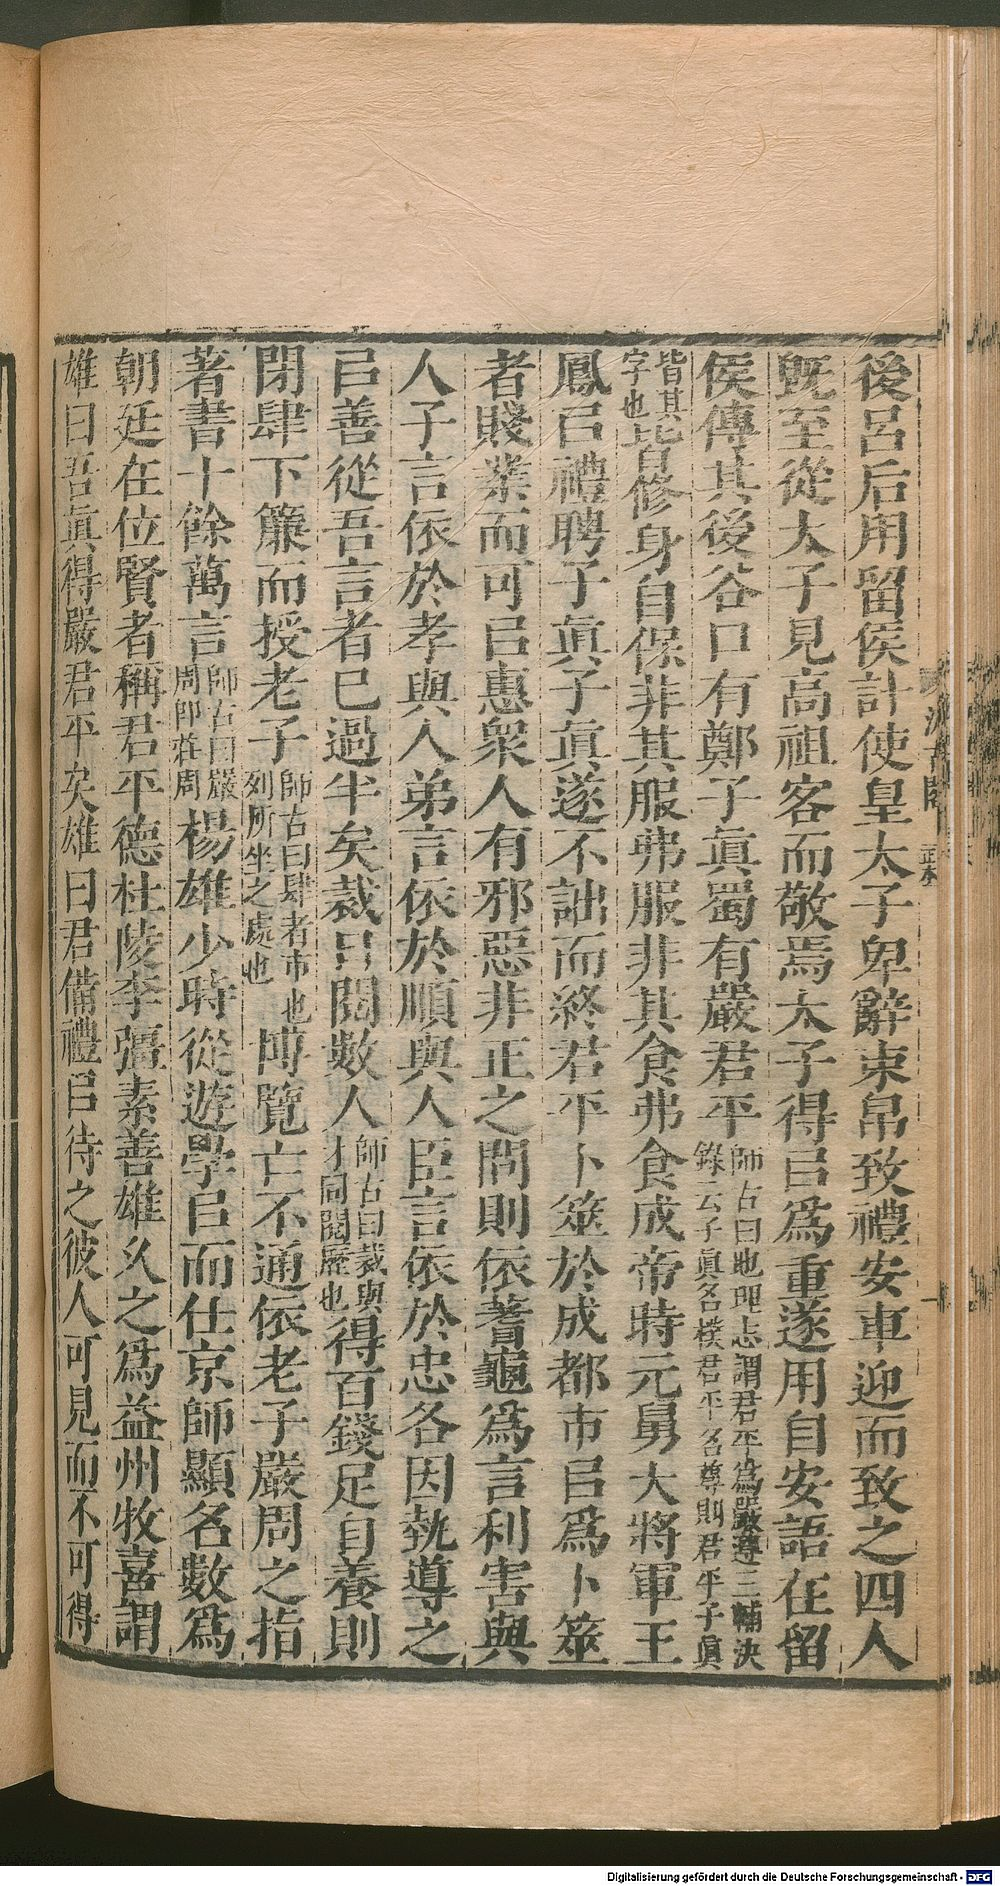 後呂后用留侯計使皇太子卑辭束帛致禮安車迎而致之四人
既至從太子見高祖客而敬焉太子得㠯爲重遂用自安語在留
侯傳其後谷口有鄭子眞蜀有嚴君平師古曰地理志謂君平爲嚴遵三輔決
錄云子眞名樸君平名尊則君平子眞
皆其
字也皆修身自保非其服弗服非其食弗食成帝時元舅大將軍王
鳳㠯禮聘子眞子眞遂不詘而終君平卜筮於成都市㠯爲卜筮
者賤業而可㠯惠衆人有邪惡非正之問則依蓍龜爲言利害與
人子言依於孝與人弟言依於順與人臣言依於忠各因埶導之
㠯善從吾言者已過半矣裁日閱數人師古曰裁與
才同閱歷也得百錢足自養則
閉肆下簾而授老子師古曰肆者市也
列所坐之處也博覽亡不通依老子嚴周之指
著書十餘萬言師古曰嚴
周卽莊周楊雄少時從遊學㠯而仕京師顯名數爲
朝廷在位賢者稱君平德杜陵李彊素善雄久之爲益州牧喜謂
雄曰吾眞得嚴君平矣雄曰君備禮㠯待之彼人可見而不可得
Digitalisierung gefördert durch die Deutsche Forschungsgemeinschaft - DFG